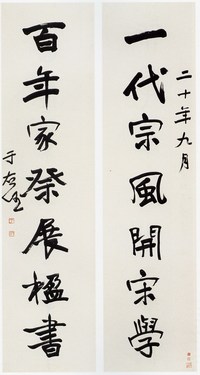 二十年九月
一代宗風開宋學
百年家祭展楹書
于右任